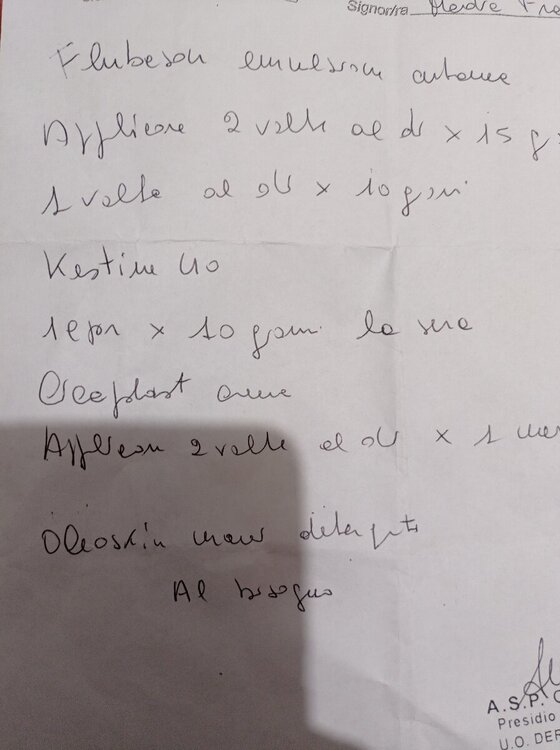 Signor/ra
Flubason emulsione cutanea
Applicare 2 volte al dì x 15 g
1 volta al dì x 10 giorni
Kestine 10
1 cpr x 10 giorni la sera
crema
Applicare 2 volte al dì x 1 mes
Oleoskin mani detergente
Al bisogno
A.S.P. C
Presidio
U.O. DER